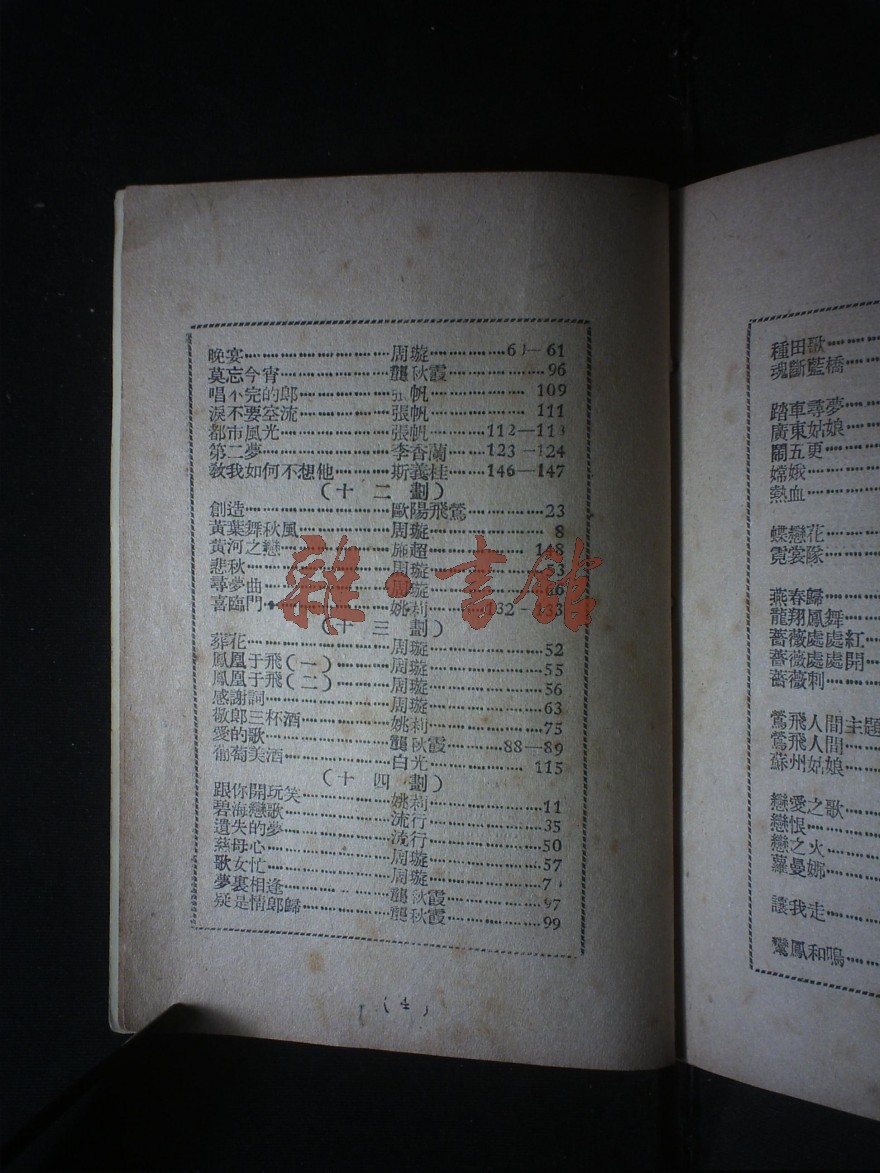 晚宴 周璇 6 —61
莫忘今宵 龔秋霞 96
唱不完的郎 帆 109
淚不要空流 張帆 111
都市風光 張帆 112—113
第二夢 李香蘭 123—124
敎我如何不想他 斯義桂 146—147
(十二劃)
創造 歐陽飛鶯 23
黃葉舞秋風 周璇 8
黃河之戀 施超 148
悲秋 周璇 53
尋夢曲 周璇 66
喜臨門 姚莉 132-133
(十三劃)
葬花 周璇 52
鳳凰于飛(一) 周璇 55
鳳凰于飛(二) 周璇 56
感謝詞 周璇 63
敬郎三杯酒 姚莉 75
愛的歌 龔秋霞 88—89
葡萄美酒 白光 115
(十四劃)
跟你開玩笑 姚莉 11
碧海戀歌 流行 35
遺失的夢 流行 50
慈母心 周璇 57
歌女忙 周璇 7
夢裏相逢 龔秋霞 97
疑是情郎歸 龔秋霞 99
(4)
種田歌
魂斷藍橋
踏車尋夢
廣東姑娘
鬧五更
嫦娥
熱血
蝶戀花
霓裳隊
燕春歸
龍翔鳳舞
薔薇處處紅
薔薇處處開
薔薇刺
鶯飛人間主題
鶯飛人間
蘇州姑娘
戀愛之歌
戀恨
戀之火
蘿曼娜
讓我走
鸞鳳和鳴
雜·書館